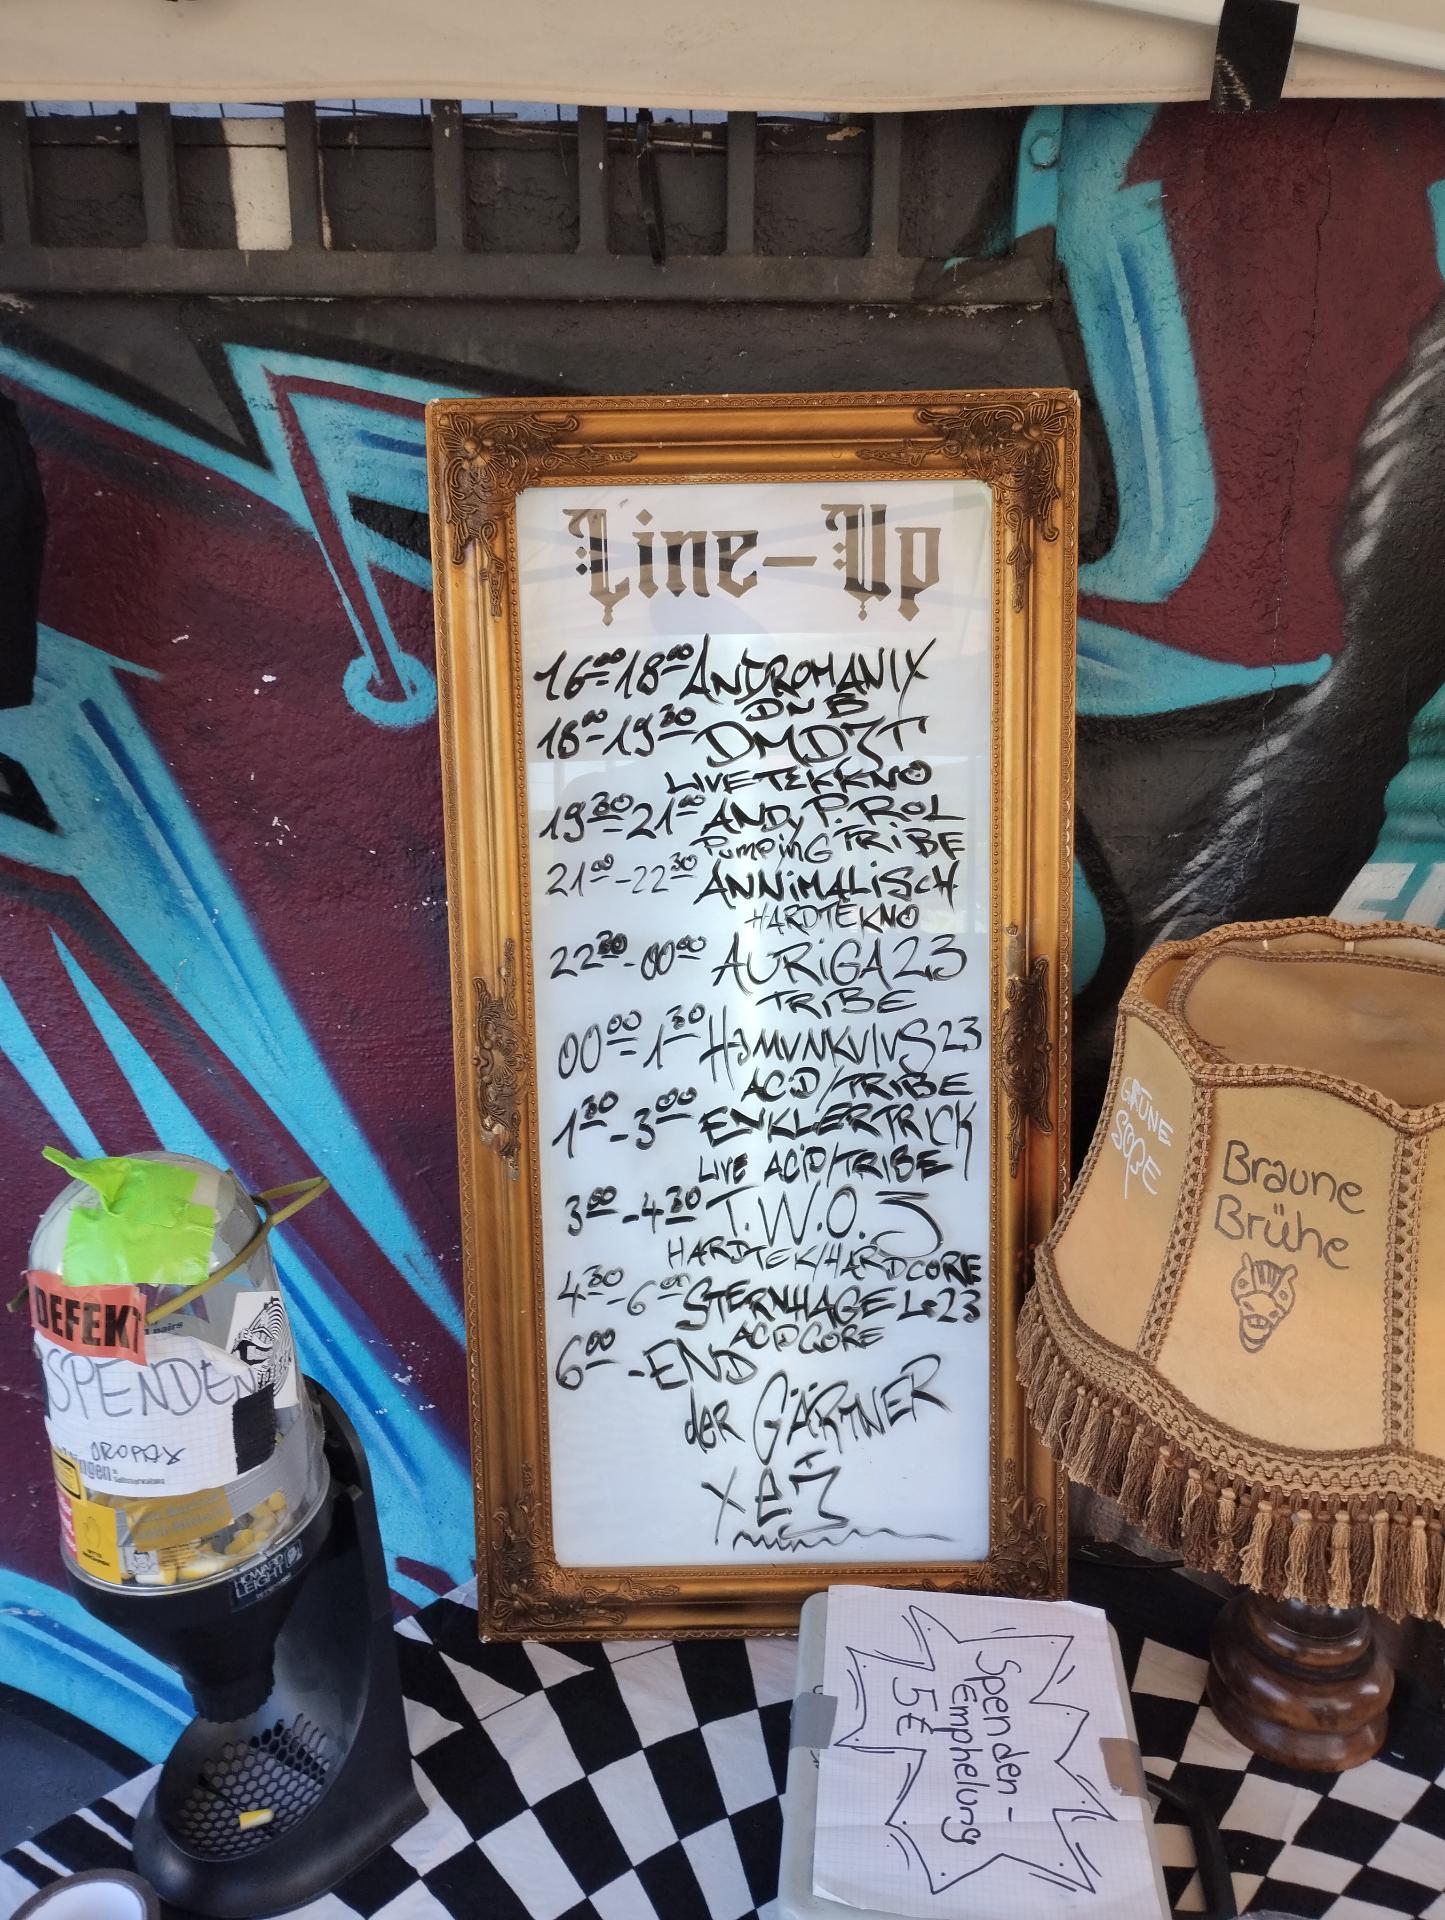 Line-Up
16⁰⁰-18⁰⁰ ANDROMANIX
DNB
18⁰⁰-19³⁰ DMD3T
LIVE TEKKNO
19³⁰-21⁰⁰ ANDy P. ROL
PumpinG TRiBE
21⁰⁰-22³⁰ ANNiMALiSCH
HARDTEKNO
22³⁰-00⁰⁰ AURiGA 23
TRiBE
00⁰⁰-1³⁰ HOMUNKulUS 23
ACiD/TRIBE
1³⁰-3⁰⁰ ENKLERTRICK
LIVE ACiD/TRIBE
3⁰⁰-4³⁰ T.W.O. 3
HARDTEK/HARDCORE
4³⁰-6⁰⁰ STERNHAGEL 23
ACiDCORE
6⁰⁰-END
der GÄRTNER
GRÜNE
SOßE
Braune
Brühe
DEFEKT
pairs
SPENDEN
OROPAX
HOWARD
LEIGHT
Spenden-
Empfhelung
5€